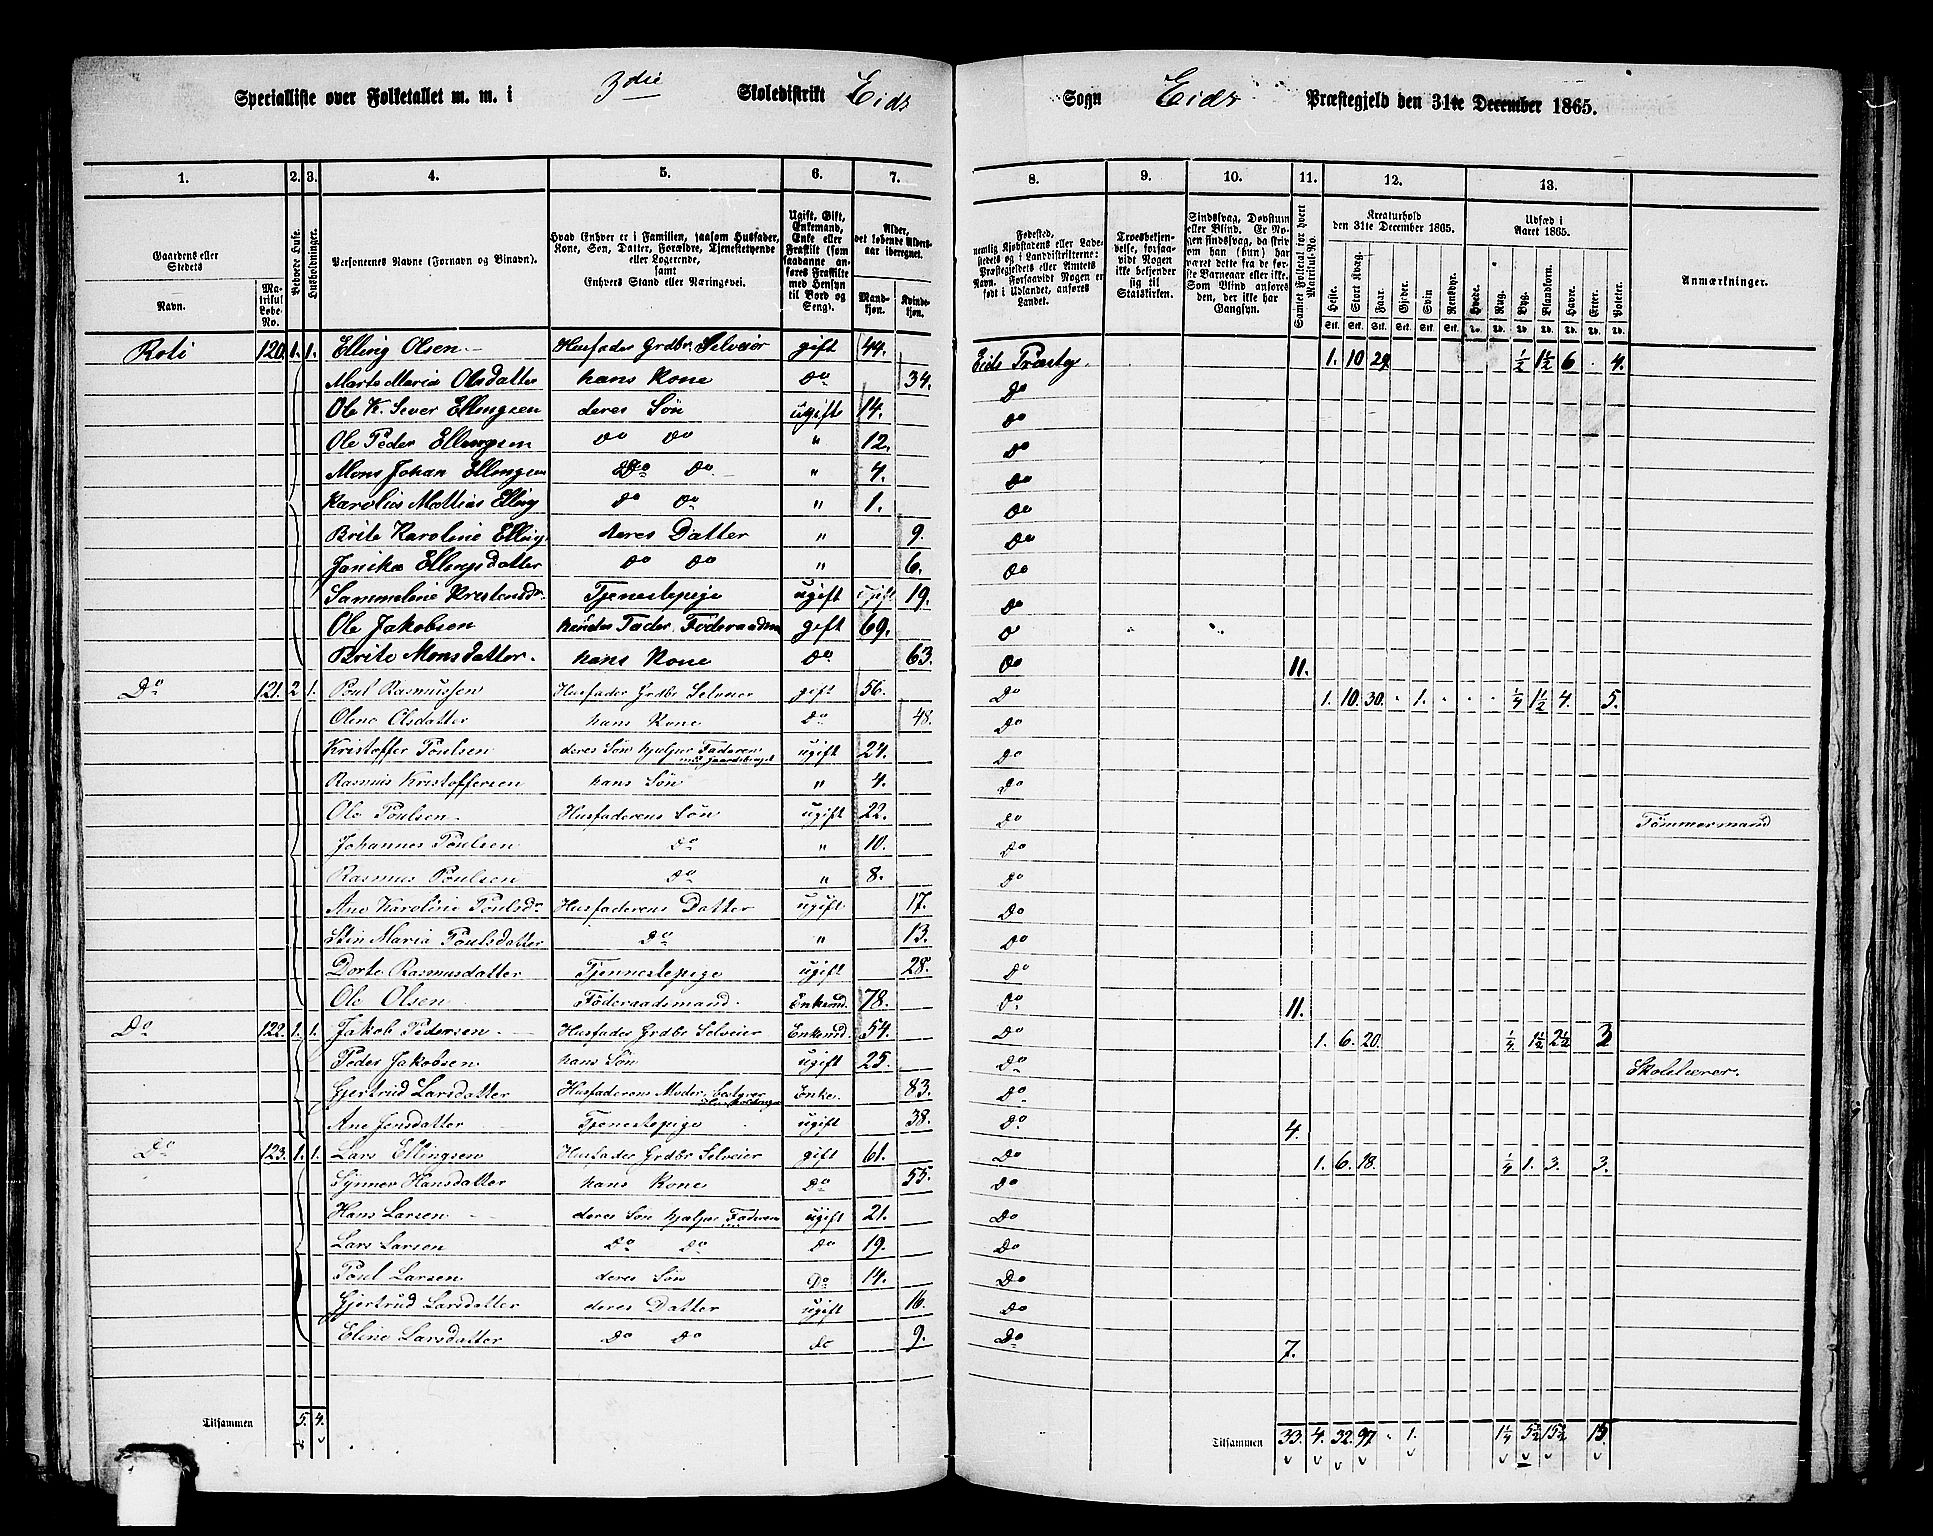 Specialliste over Folketallet m. m. i 3die Skoledistrikt Eids Sogn Eids Præstegjeld den 31te December 1865.
1. 2. 3. 4. 5. 6. 7. 8. 9. 10. 11. 12. 13.
Gaardens eller Stedets
Navn.
Matrikul Løbe-No.
Beboede Huse.
Husholdninger.
Personernes Navne (Fornavn og Binavn).
Hvad Enhver er i Familien, saasom Husfader, Kone, Søn, Datter, Forældre, Tjenestetyende eller Logerende,
samt
Enhvers Stand eller Næringsvei.
Ugift, Gift, Enkemand, Enke eller Fraskilt (som saadanne anføres Fraskilte med Hensyn til Bord og Seng).
Alder, det løbende Aldersaar iberegnet.
Mandkjøn.
Kvindekjøn.
Fødested,
nemlig Kjøbstadens eller Ladestedets og i Landdistrikterne: Præstegjeldets eller Amtets Navn. Forsaavidt Nogen er født i Udlandet, anføres Landet.
Troesbekjendelse, forsaavidt Nogen ikke bekjender sig til Statskirken.
Sindssvag, Døvstum eller Blind. Er Nogen sindssvag, da skrives om han (hun) har været dette fra de første Barneaar eller ikke. Som Blind anføres den, der ikke har Gangsyn.
Samlet Folketal for hvert Matrikul-No.
Kreaturhold
den 31te December 1865.
Heste. Stort Kvæg. Faar. Gjeder. Svin Rensdyr.
Udsæd i
Aaret 1865.
Hvede. Rug. Byg. Blandkorn. Havre. Erter. Poteter.
Anmærkninger.
Roti 120. 1. 1. Elling Olsen Husfader Grdbr Selveier gift 44. Eids Præstg. 1. 10 29. ½ 1½ 6 4.
Marte Maria Olsdatter hans Kone Do 34. Do
Ole K. Sever Ellingsen deres Søn ugift 14. Do
Ole Peder Ellingsen Do Do " 12. Do
Mons Johan Ellingsen Do Do " 4. Do
Karolius Mattias Elling Do Do " 1. Do
Brite Karoline Elling deres Datter " 9. Do
Janika Ellingsdatter Do Do " 6. Do
Sammeline Krestensdr Tjenestepige ugift ugift 19. Do
Ole Jakobsen Fader Føderaadm gift 69.
Brite Monsdatter hans Kone Do 63. Do 11.
Do 121. 2 1. Poul Rasmussen Husfader Grdbr Selveier gift 56. Do 1. 10. 30. 1. ¼ 1½ 4. 5.
Olena Olsdatter hans Kone Do 48. Do
Kristoffer Poulsen deres Søn hjælper Faderen med Gaardsbruget ugift 24. Do
Rasmus Kristoffersen hans Søn " 4. Do
Ole Poulsen Husfaderens Søn ugift 22. Do Tømmermand
Johannes Poulsen Do " 10. Do
Rasmus Poulsen Do " 8. Do
Ane Karoline Poulsdr Husfaderens Datter ugift 17. Do
Maria Poulsdatter Do " 13. Do
Dorte Rasmusdatter Tjennestepige ugift 28. Do
Ole Olsen Føderaadsmand. Enkemd. 78. Do 11.
Do 122. 1. 1. Jakob Pedersen Husfader Grdbr Selveier Enkemd 54. Do 1. 6. 20. ¼ 1½ 2½ 3
Peder Jakobsen hans Søn ugift 25. Do Skolelærer.
Gjertrud Larsdatter Husfaderens Moder, bestyrer Enke. 83. Do
Ane Jensdatter Tjenestepige ugift 38. Do 4.
Do 123. 1. 1. Lars Ellingsen Husfader Grdbr Selveier gift 61. Do 1. 6. 18. ¼ 1. 3. 3.
Synner Hansdatter hans Kone Do 55. Do
Hans Larsen deres Søn hjælper Faderen ugift 21. Do
Lars Larsen Do Do Do 19. Do
Poul Larsen deres Søn Do 14. Do
Gjertrud Larsdatter deres Datter ugift 16. Do
Eline Larsdatter Do Do do 9. Do 7.
Tilsammen 5. 4. Tilsammen 33. 4. 32. 97 1. 1¼ 5½ 15½ 15.